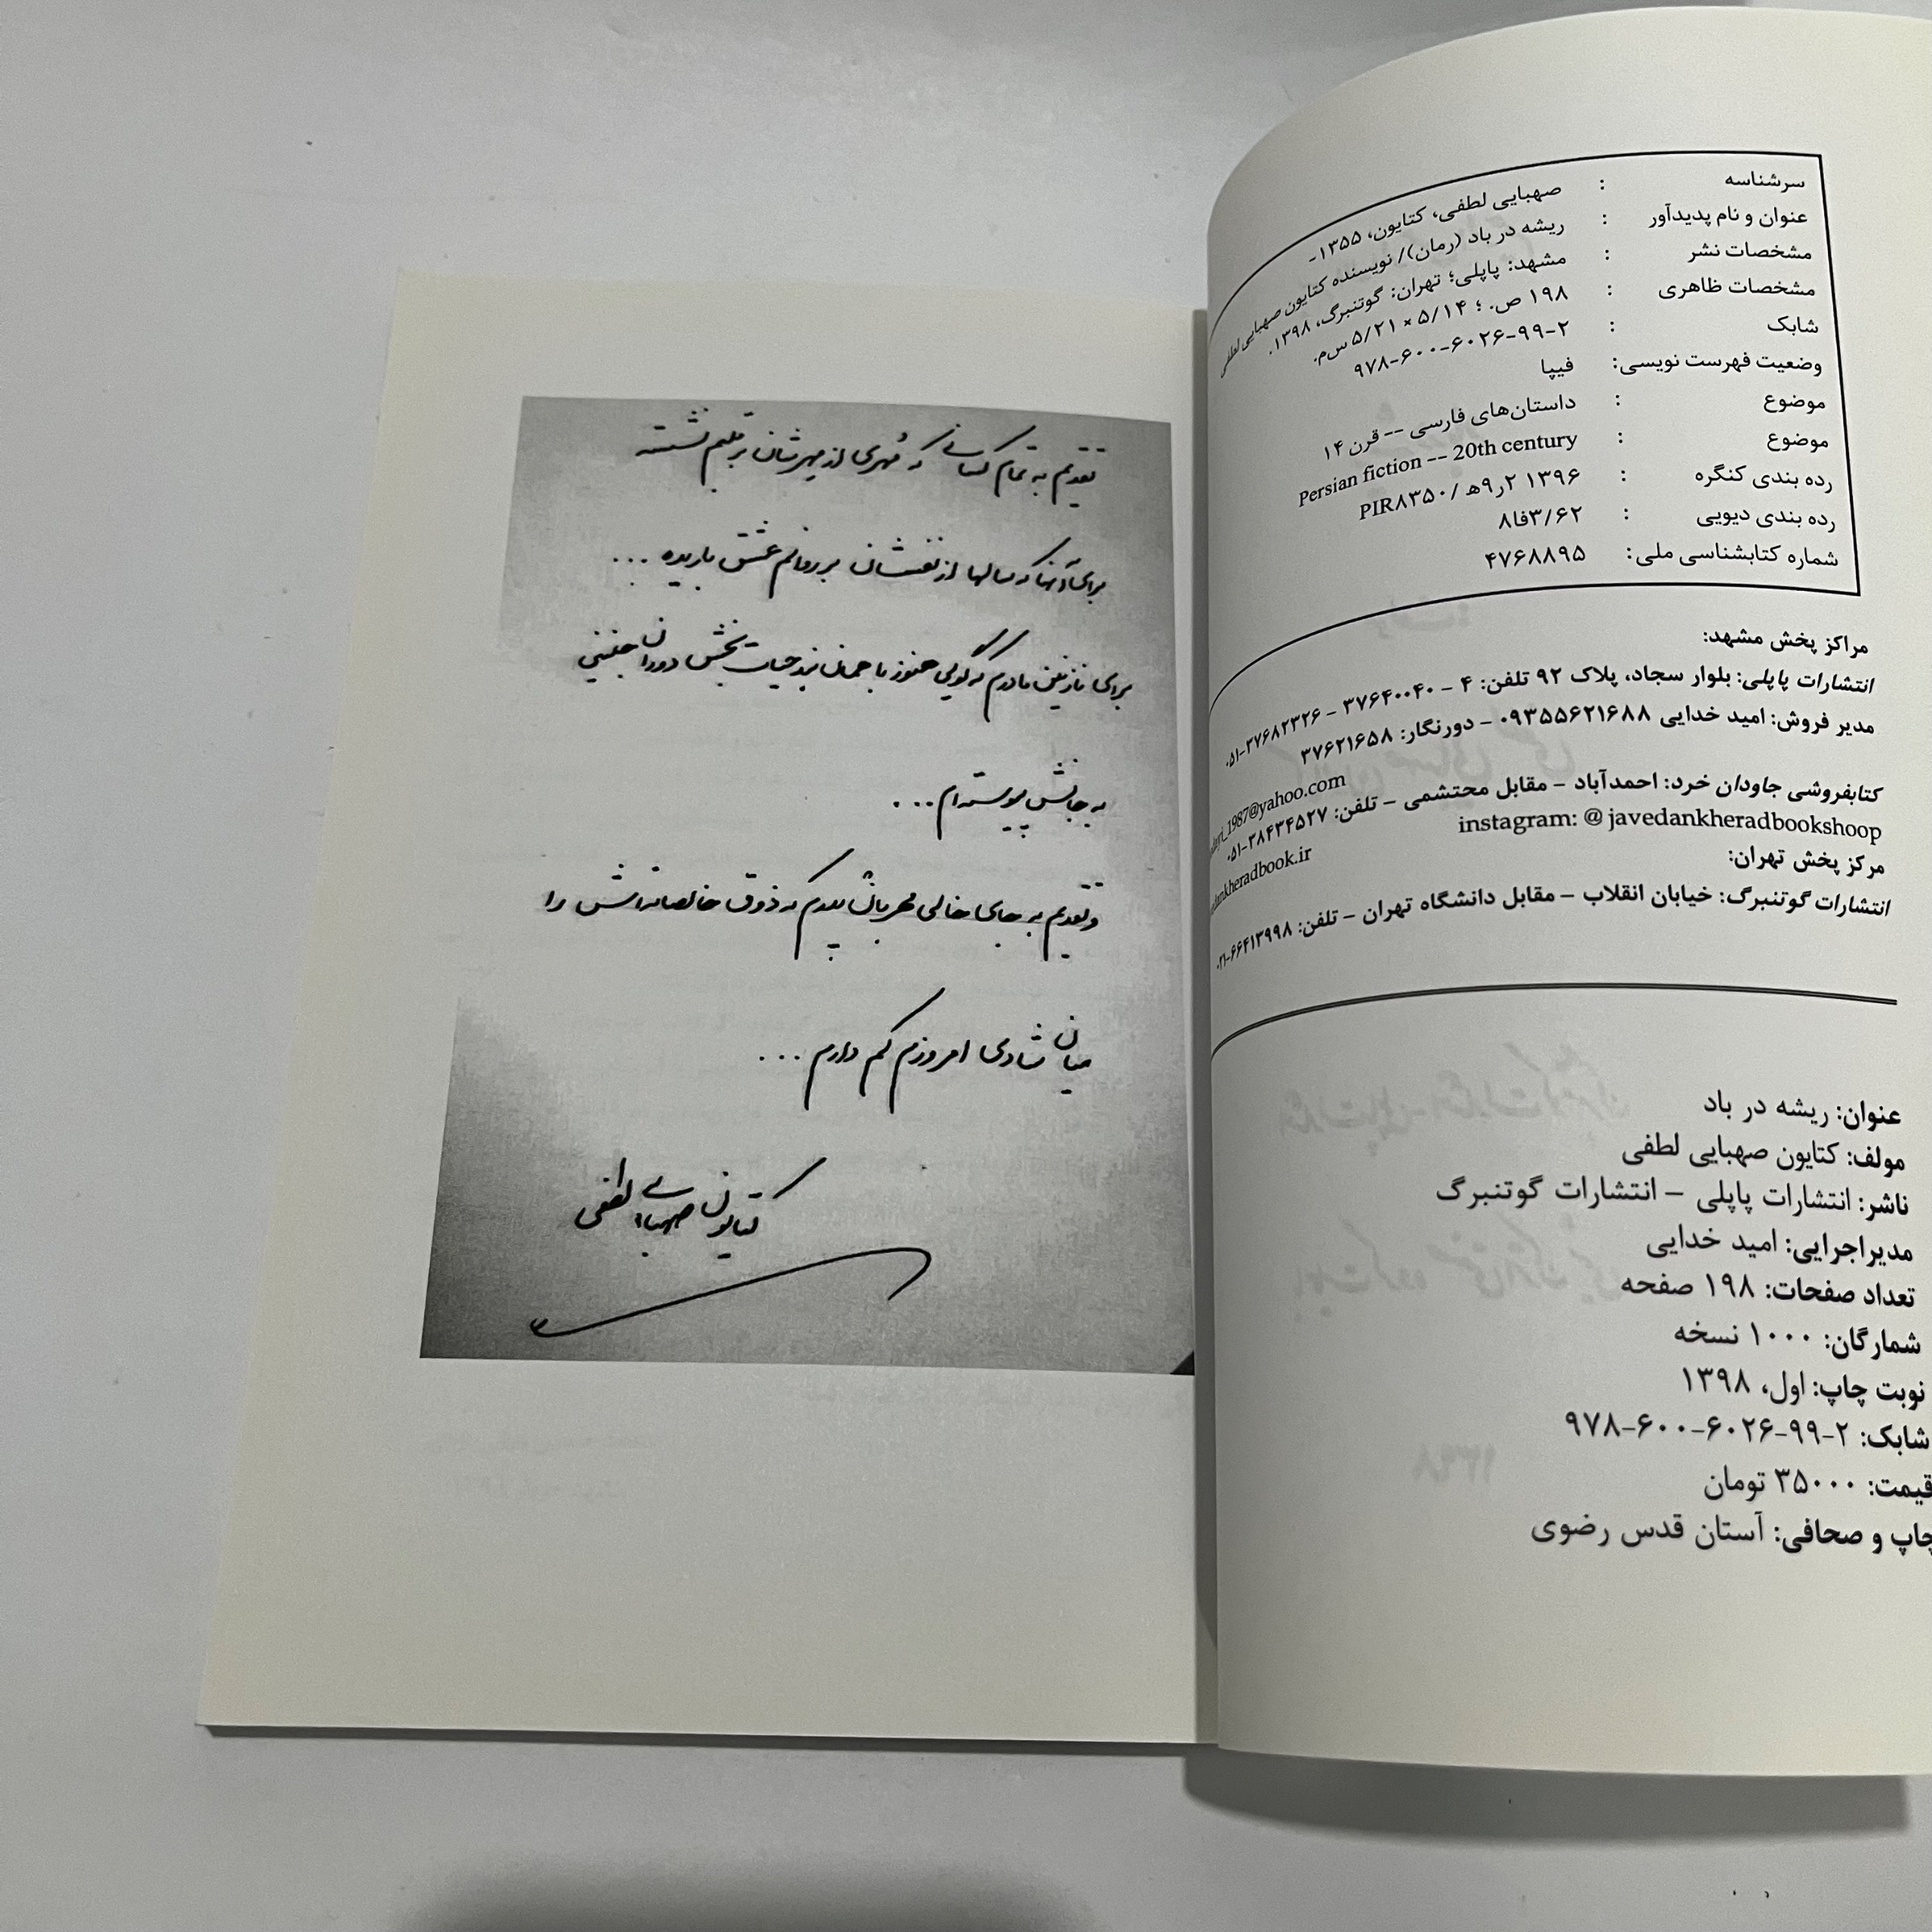 سرشناسه : صهبایی لطفی، کتایون، ۱۳۵۵-
عنوان و نام پدیدآور : ریشه در باد (رمان)/ نویسنده کتایون صهبایی لطفی
مشخصات نشر : مشهد: پاپلی؛ تهران: گوتنبرگ، ۱۳۹۸.
مشخصات ظاهری : ۱۹۸ ص. ؛ ۵/۱۴ × ۵/۲۱ س‌م.
شابک : ۹۷۸-۶۰۰-۶۰۲۶-۹۹-۲
وضعیت فهرست نویسی: فیپا
موضوع : داستان‌های فارسی -- قرن ۱۴
موضوع : Persian fiction -- 20th century
رده بندی کنگره : PIR۸۳۵۰/ ۲ر۹ه ۱۳۹۶
رده بندی دیویی : ۸فا۳/۶۲
شماره کتابشناسی ملی: ۴۷۶۸۸۹۵
مراکز پخش مشهد:
انتشارات پاپلی: بلوار سجاد، پلاک ۹۲ تلفن: ۴ - ۳۷۶۴۰۰۴۰ - ۰۵۱-۳۷۶۸۲۳۲۶
مدیر فروش: امید خدایی ۰۹۳۵۵۶۲۱۶۸۸ - دورنگار: ۳۷۶۲۱۶۵۸
_1987@yahoo.com
کتابفروشی جاودان خرد: احمدآباد - مقابل محتشمی - تلفن: ۰۵۱-۳۸۴۳۴۵۲۷
instagram: @ javedankheradbookshoop
dankheradbook.ir
مرکز پخش تهران:
انتشارات گوتنبرگ: خیابان انقلاب - مقابل دانشگاه تهران - تلفن: ۰۲۱-۶۶۴۱۳۹۹۸
عنوان: ریشه در باد
مولف: کتایون صهبایی لطفی
ناشر: انتشارات پاپلی - انتشارات گوتنبرگ
مدیراجرایی: امید خدایی
تعداد صفحات: ۱۹۸ صفحه
شمارگان: ۱۰۰۰ نسخه
نوبت چاپ: اول، ۱۳۹۸
شابک: ۹۷۸-۶۰۰-۶۰۲۶-۹۹-۲
قیمت: ۳۵۰۰۰ تومان
چاپ و صحافی: آستان قدس رضوی
تقدیم به تمام کسانی که مُهری از مهرشان بر قلبم نشسته
برای آنها که سالها از نفسشان بر روانم عشق باریده ...
برای نازنین مادرم که گویی هنوز با همان بند حیات بخش دوران جنینی
به جانش پیوسته‌ام ...
و تقدیم به جای خالی مهربان پدرم که ذوق خالصانه‌اش را
میان شادی امروزم کم دارم ...
کتایون صهبایی لطفی